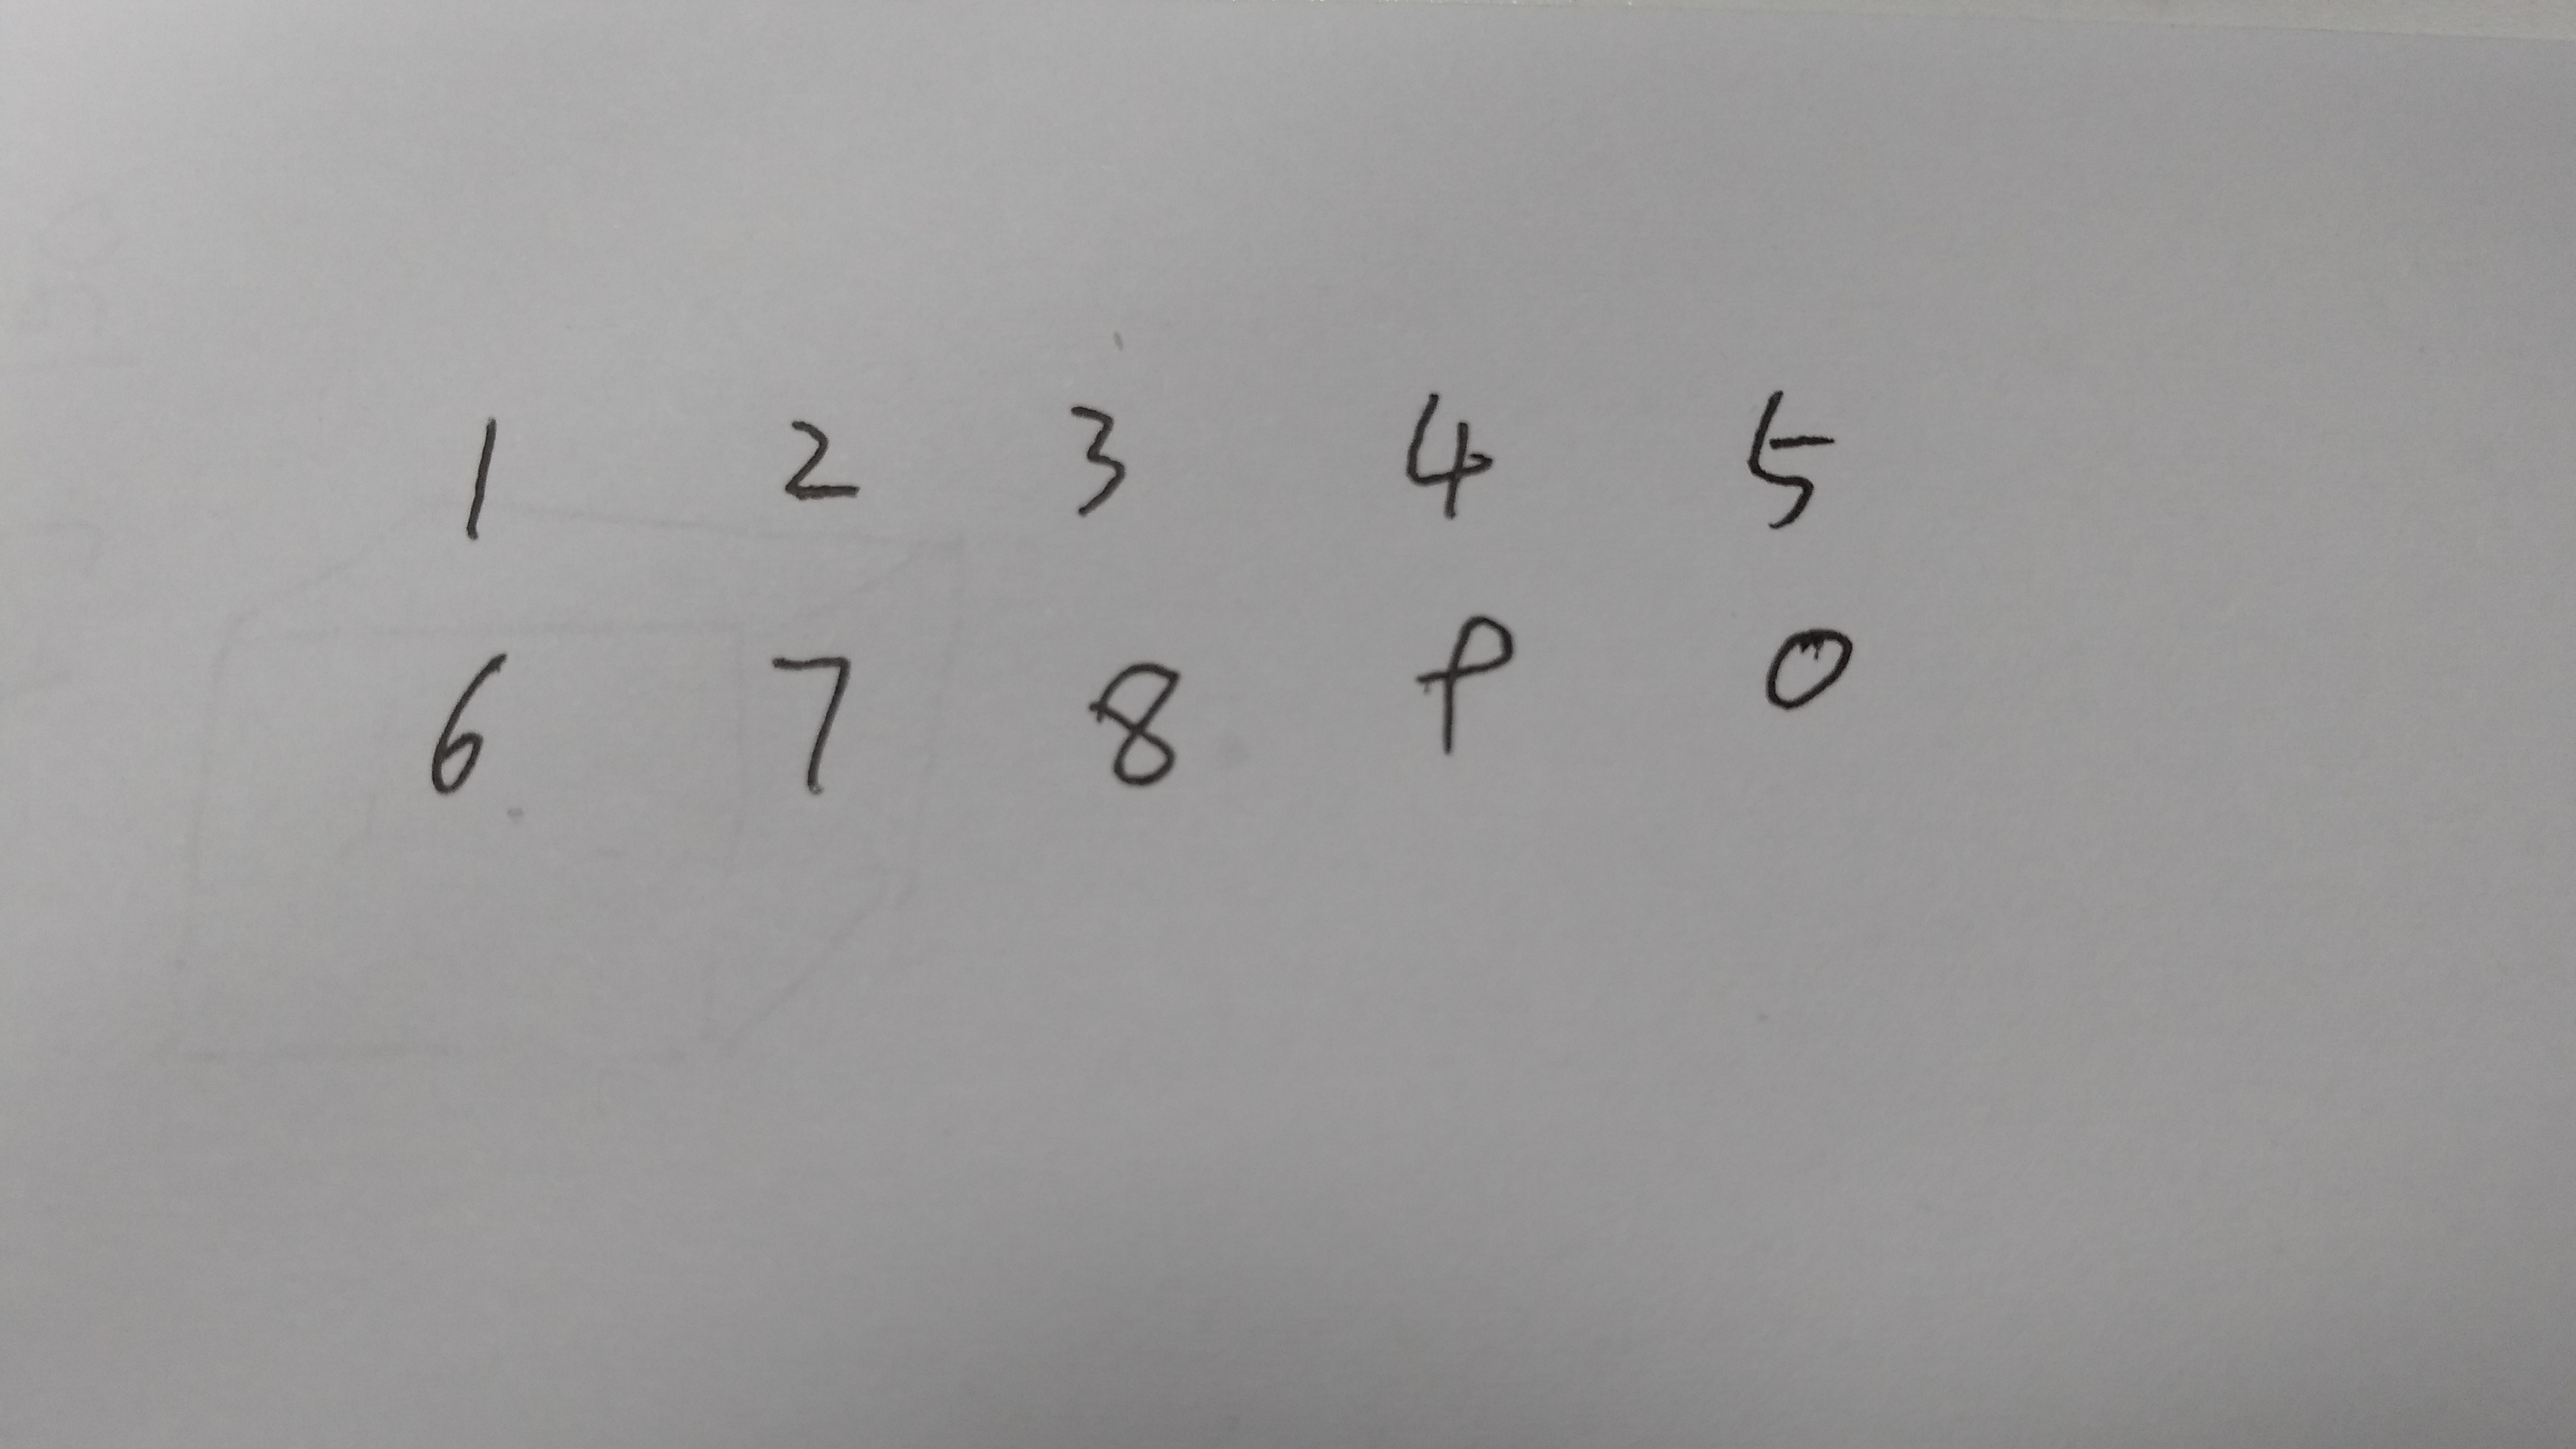 1 2 3 4 5
6 7 8 P 0